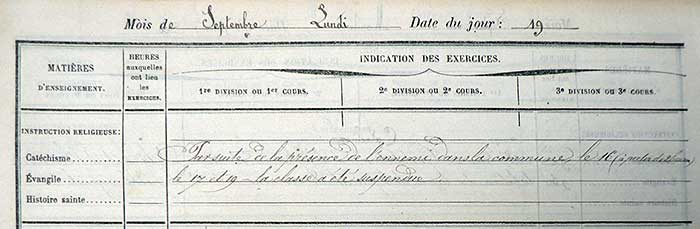 Mois de Septembre Lundi Date du jour: 19
MATIÈRES D'ENSEIGNEMENT.
HEURES auxquelles ont lieu les EXERCICES.
INDICATION DES EXERCICES.
1RE DIVISION OU 1ER COURS.
2E DIVISION OU 2E COURS.
3E DIVISION OU 3E COURS.
INSTRUCTION RELIGIEUSE:
Catéchisme
Par suite de la présence de l'ennemi dans la commune, le 16 (à partir de
Évangile
le 17 et 19 – la classe a été suspendue
Histoire sainte